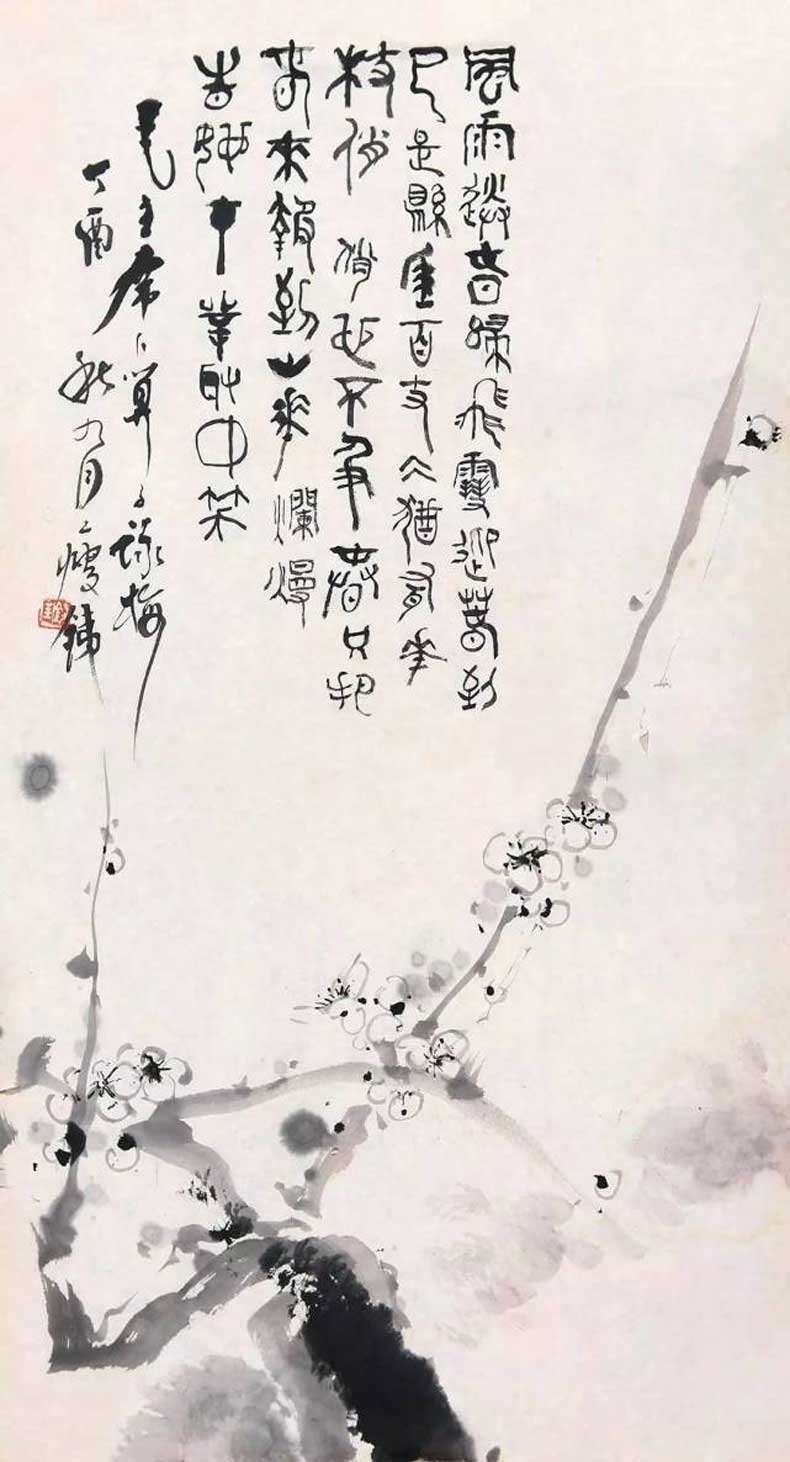 風雨送春歸飛雪迎春到
已是縣厓百丈冰猶有花
枝俏俏也不爭春只把
春來報到山花爛熳
時她在叢中笑
毛主席卜算子詠梅
丁酉秋九月瘦鐵